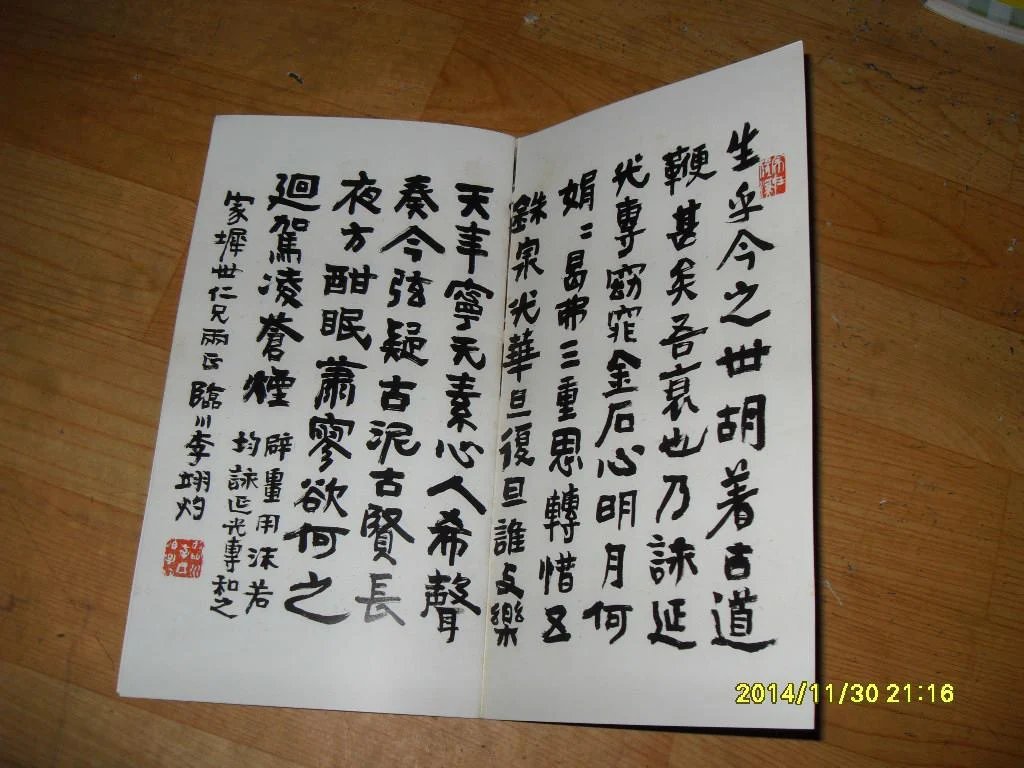 生乎今之世胡着古道
鞭甚矣吾衰也乃詠延
光專窈窕金石心明月何
娟〻曷弗三重思轉惜五
銖泉光華旦復旦誰與樂
天年寧无素心人希聲
奏今弦疑古泥古賢長
夜方酣眠蕭寥欲何之
迴駕凌蒼煙
辟畺用沫若
均詠延光專和之
家墀世仁兄兩正 臨川李翊灼
2014/11/30 21:16